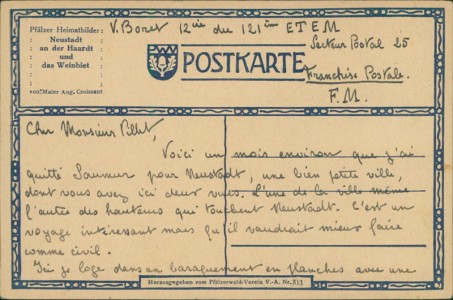 Pfälzer Heimatbilder:
Neustadt
an der Haardt
und
das Weinbiet
von Maler Aug. Croissant
V. Boret 12ième du 121ième ETEM
Secteur Postal 25
POSTKARTE
Franchise Postale.
F.M.
Cher Monsieur Pillet,
Voici un mois environ que j'ai
quitté Saumur pour Neustadt, une bien petite ville,
dont vous avez ici deux vues. L'une de la ville même
l'autre des hauteurs qui touchent Neustadt. C'est un
voyage intéressant mais qu'il vaudrait mieux faire
comme civil.
Ici je loge dans un baraquement en planches avec une
Herausgegeben vom Pfälzerwald-Verein V.-A. Nr.